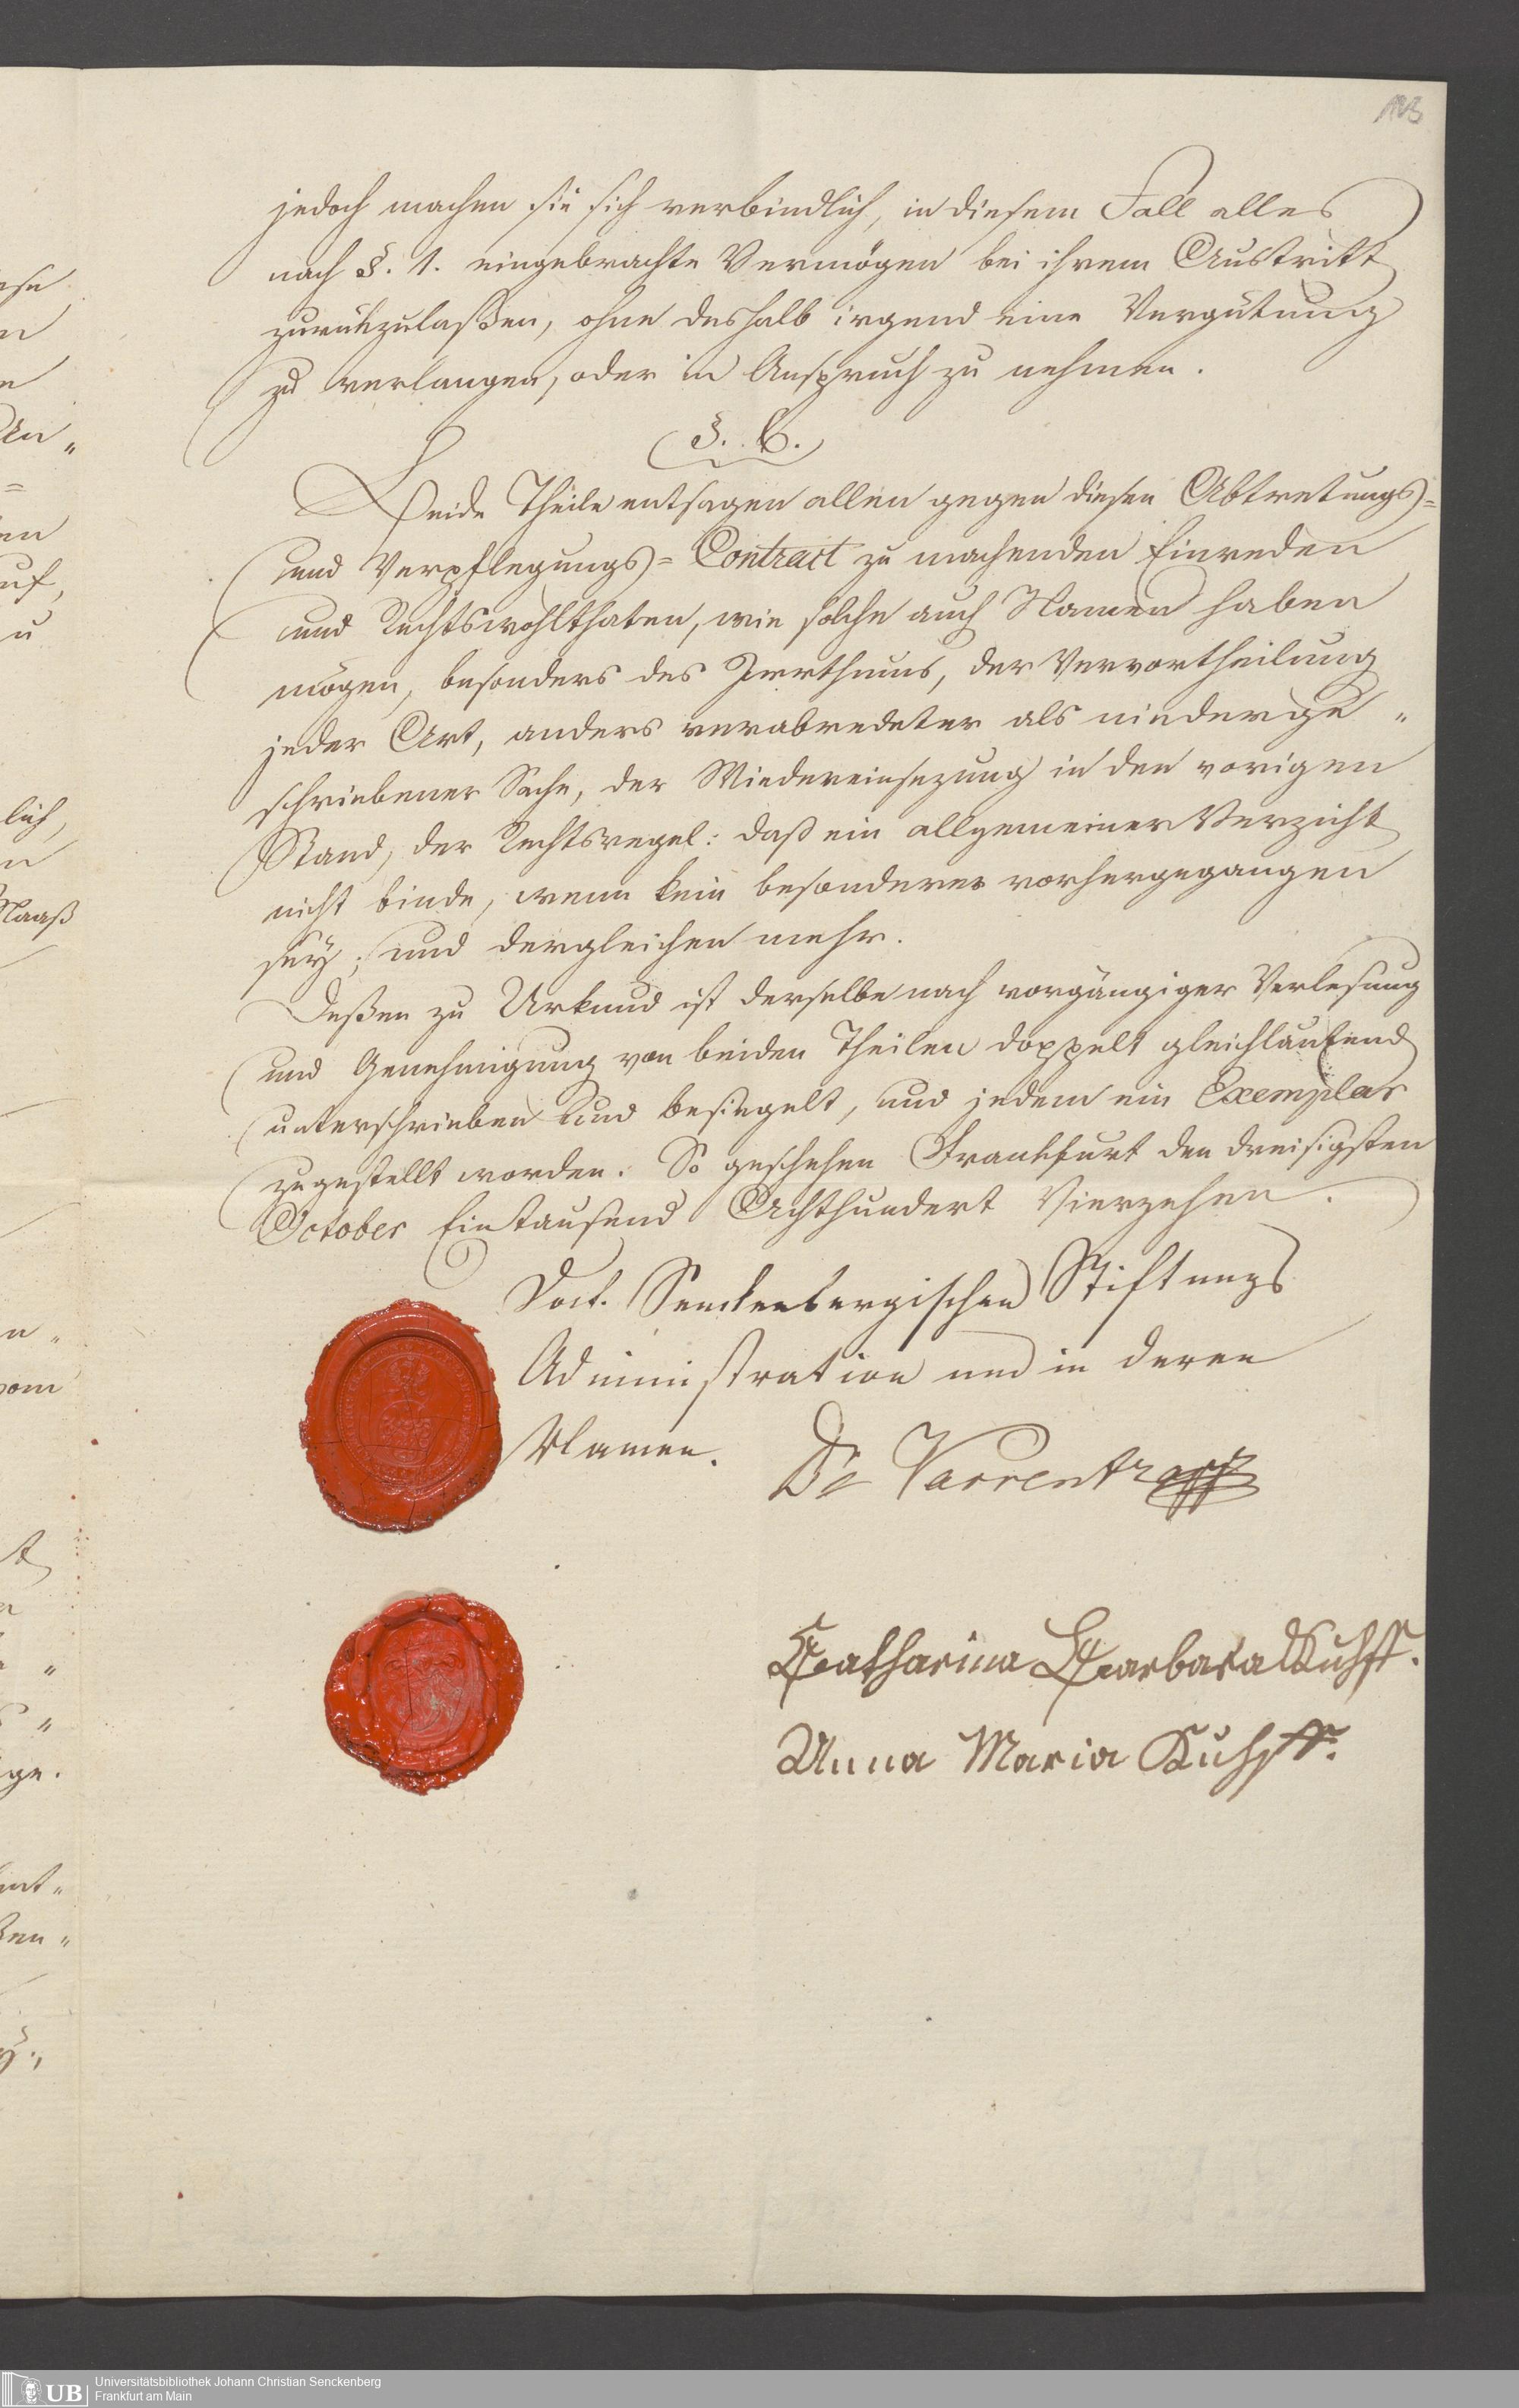 103
jedoch machen sie sich verbindlich, in diesem Fall alles
nach §. 1. eingebrachte Vermögen bei ihrem Austritt
zurükzulaßen, ohne deshalb irgend eine Vergütung
zu verlangen, oder in Anspruch zu nehmen.
§. 6.
Beide Theile entsagen allen gegen diesen Abtretungs=
und Verpflegungs=Contract zu machenden Einreden
und Rechtswohlthaten, wie solche auch Namen haben
mögen, besonders des Irrthums, der Vervortheilung
jeder Art, anders verabredeter als niederge„
schriebener Sache, der Wiedereinsezung in den vorigen
Stand, der Rechtsregel: daß ein allgemeiner Verzicht
nicht binde, wenn kein besonderer vorhergegangen
sey; und dergleichen mehr.
Deßen zu Urkund ist derselbe nach vorgängiger Verlesung
und Genehmigung von beiden Theilen doppelt gleichlautend
unterschrieben und besiegelt, und jedem ein Exemplar
zugestellt worden. So geschehen Frankfurt den dreisigsten
October Eintausend Achthundert Vierzehen.
Doct. Senckenbergischen Stiftungs
Administration und in deren
Namen. Dr Varrentrapp
Catharina Barbara Kuhff.
Anna Maria Kuhff.
UB
Universitätsbibliothek Johann Christian Senckenberg
Frankfurt am Main